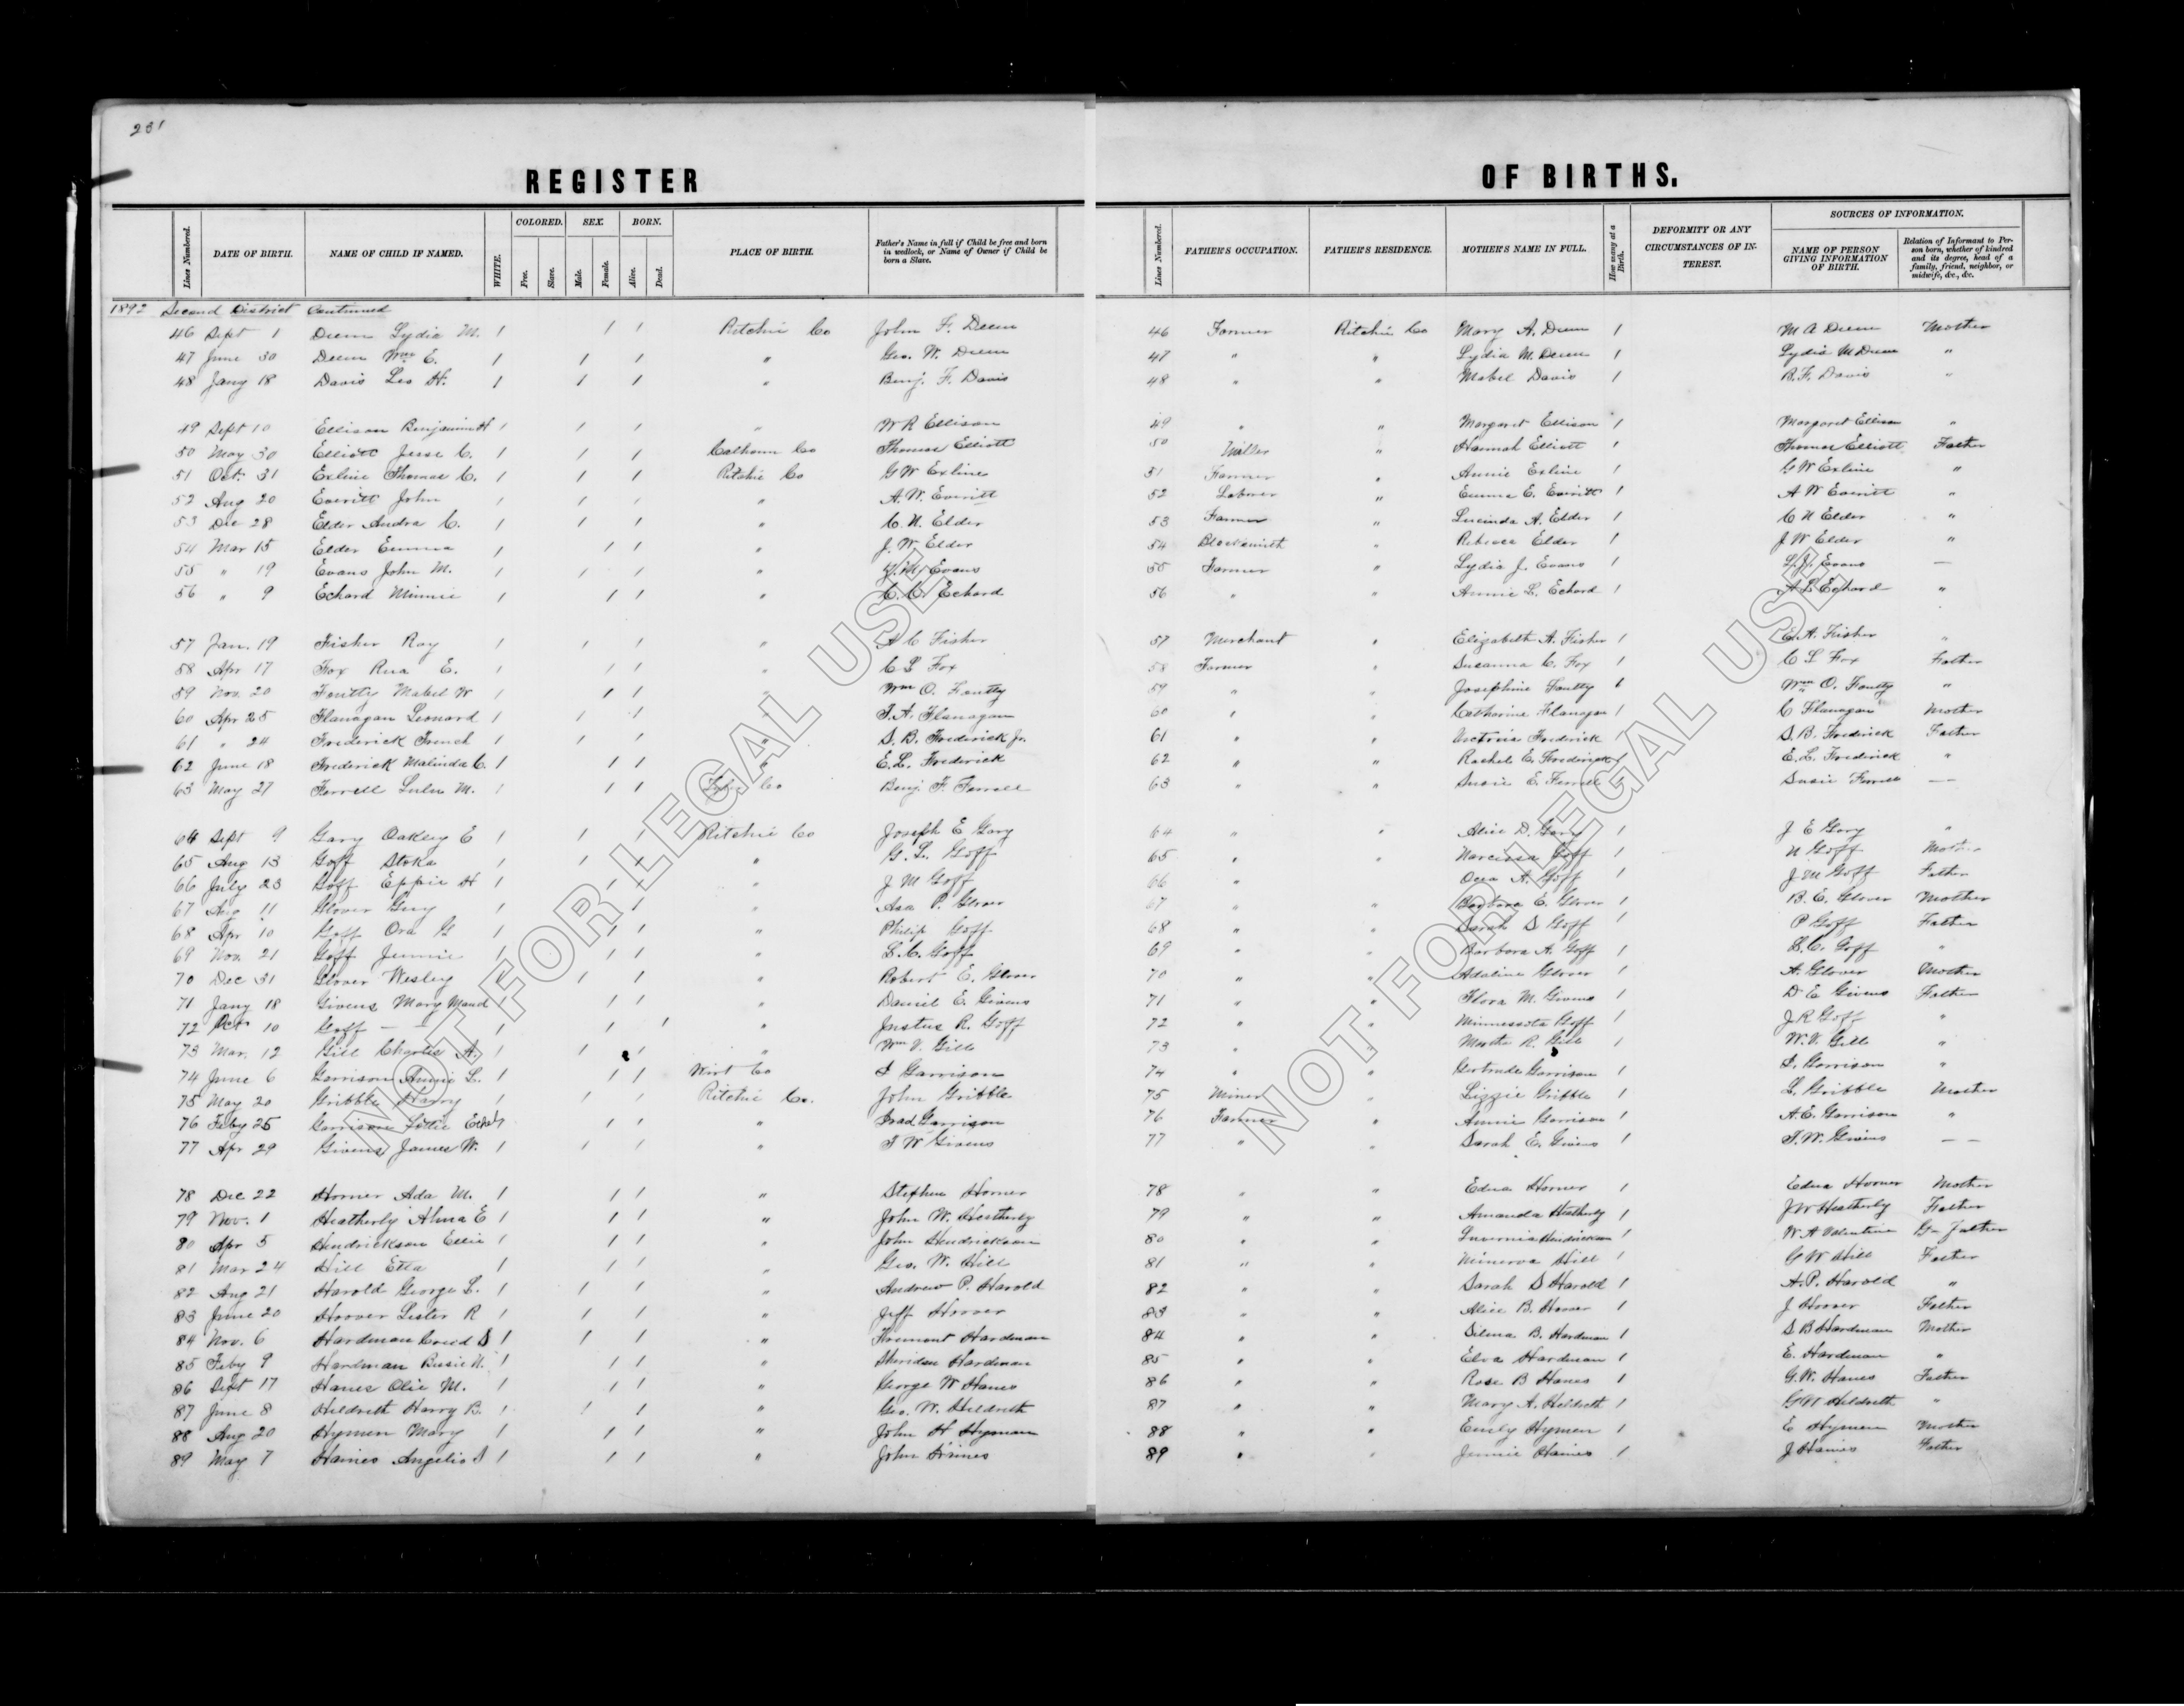 231
REGISTER OF BIRTHS.
Lines Numbered. DATE OF BIRTH. NAME OF CHILD IF NAMED. WHITE. COLORED. Free. Slave. SEX. Male. Female. BORN. Alive. Dead. PLACE OF BIRTH. Father's Name in full if Child be free and born in wedlock, or Name of Owner if Child be born a Slave. Lines Numbered. FATHER'S OCCUPATION. FATHER'S RESIDENCE. MOTHER'S NAME IN FULL. How many at a Birth. DEFORMITY OR ANY CIRCUMSTANCES OF INTEREST. SOURCES OF INFORMATION. NAME OF PERSON GIVING INFORMATION OF BIRTH. Relation of Informant to Person born, whether of kindred and its degree, head of a family, friend, neighbor, or midwife, &c., &c.
1892 Second District Continued
46 Sept 1 Deem Lydia M. 1 1 1 Ritchie Co John F. Deem 46 Farmer Ritchie Co Mary A. Deem 1 M A Deem Mother
47 June 30 Deem Wm E. 1 1 1 " Geo. W. Deem 47 " " Lydia M. Deem 1 Lydia M Deem "
48 Jany 18 Davis Leo H. 1 1 1 " Benj. F. Davis 48 " " Mabel Davis 1 B. F. Davis "
49 Sept 10 Ellison Benjamin H 1 1 1 " W R Ellison 49 " " Margaret Ellison 1 Margaret Ellison "
50 May 30 Elliott Jesse C. 1 1 1 Calhoun Co Thomas Elliott 50 Miller " Hannah Elliott 1 Thomas Elliott Father
51 Oct. 31 Exline Thomas C. 1 1 1 Ritchie Co G W Exline 51 Farmer " Annie Exline 1 G W Exline "
52 Aug 20 Everitt John 1 1 1 " A. W. Everitt 52 Laborer " Emma E. Everitt 1 A W Everitt "
53 Dec 28 Elder Andra C. 1 1 1 " C. N. Elder 53 Farmer " Lucinda A. Elder 1 C N Elder "
54 Mar 15 Elder Emma 1 1 1 " J. W. Elder 54 Blacksmith " Rebecca Elder 1 J W Elder "
55 " 19 Evans John M. 1 1 1 " Evans 55 Farmer " Lydia J. Evans 1 L. J. Evans —
56 " 9 Echard Minnie 1 1 1 " C. C. Echard 56 " " Annie L. Echard 1 A L Echard "
57 Jan. 19 Fisher Ray 1 1 1 " A C Fisher 57 Merchant " Elizabeth A. Fisher 1 E. A. Fisher "
58 Apr 17 Fox Rua E. 1 1 1 " C L Fox 58 Farmer " Susanna C. Fox 1 C L Fox Father
59 Nov. 20 Foutty Mabel W 1 1 1 " Wm O. Foutty 59 " " Josephine Foutty 1 Wm O. Foutty "
60 Apr 25 Flanagan Leonard 1 1 1 " T. A. Flanagan 60 " " Catharine Flanagan 1 C Flanagan Mother
61 " 24 Frederick French 1 1 1 " S. B. Frederick Jr. 61 " " Victoria Frederick 1 S. B. Frederick Father
62 June 18 Frederick Malinda C. 1 1 1 " E. L. Frederick 62 " " Rachel E. Frederick 1 E. L. Frederick "
63 May 27 Ferrell Lulu M. 1 1 1 Co Benj. F. Ferrell 63 " " Susie E. Ferrell 1 Susie Ferrell — —
64 Sept 9 Gary Oakley E 1 1 1 Ritchie Co Joseph E Gary 64 " " Alice D. Gary 1 J E Gary "
65 Aug 13 Goff Stoka 1 1 1 " G. L. Goff 65 " " Narcissa Goff 1 N Goff Mother
66 July 23 Goff Eppie H 1 1 1 " J M Goff 66 " Ocea A. Goff 1 J M Goff Father
67 Aug 11 Glover Guy 1 1 " Asa P. Glover 67 " " Barbara E. Glover 1 B. E. Glover Mother
68 Apr 10 Goff Ora G 1 1 1 " Philip Goff 68 " " Sarah S Goff 1 P Goff Father
69 Nov. 21 Goff Jennie 1 1 1 " L. C. Goff 69 " " Barbara A. Goff 1 L. C. Goff "
70 Dec 31 Glover Wesley 1 1 1 " Robert E. Glover 70 " " Adaline Glover 1 A. Glover Mother
71 Jany 18 Givens Mary Maud 1 1 " Daniel E. Givens 71 " " Flora M. Givens 1 D E Givens Father
72 Oct 10 Goff — — 1 1 1 " Justus R. Goff 72 " " Minnessota Goff 1 J R Goff "
73 Mar. 12 Gill Charlie A. 1 1 1 " Wm V. Gill 73 " " Martha R. Gill 1 W. V. Gill "
74 June 6 Garrison Annie L. 1 1 1 Wirt Co S Garrison 74 " " Gertrude Garrison 1 S. Garrison "
75 May 20 Gribble Harry 1 1 1 Ritchie Co. John Gribble 75 Miner " Lizzie Gribble 1 L. Gribble Mother
76 Feby 25 Garrison Lottie Ethel 1 1 1 " Brad Garrison 76 Farmer " Annie Garrison 1 A. E. Garrison "
77 Apr 29 Givens James W. 1 1 1 " T W Givens 77 " " Sarah E. Givens 1 T. W. Givens — —
78 Dec 22 Horner Ada M. 1 1 1 " Stephen Horner 78 " " Edna Horner 1 Edna Horner Mother
79 Nov. 1 Heatherly Alma E 1 1 1 " John W. Heatherly 79 " " Amanda Heatherly 1 J W Heatherly Father
80 Apr 5 Hendrickson Ellie 1 1 1 " John Hendrickson 80 " " Luvernia Hendrickson 1 W A Valentine Gr Father
81 Mar 24 Hill Etta 1 1 1 " Geo. W. Hill 81 " " Minerva Hill 1 G W Hill Father
82 Aug 21 Harold George L. 1 1 1 " Andrew P. Harold 82 " " Sarah S Harold 1 A. P. Harold "
83 June 20 Hoover Lester R 1 1 1 " Jeff Hoover 83 " " Alice B. Hoover 1 J Hoover Father
84 Nov. 6 Hardman Creed S 1 1 1 " Fremont Hardman 84 " " Silma B. Hardman 1 S B Hardman Mother
85 Feby 9 Hardman Busie N. 1 1 1 " Sheridan Hardman 85 " " Elva Hardman 1 E. Hardman "
86 Sept 17 Hanes Olie M. 1 1 1 " George W Hanes 86 " " Rose B Hanes 1 G. W. Hanes Father
87 June 8 Hildreth Harry B. 1 1 1 " Geo. W. Hildreth 87 " " Mary A. Hildreth 1 G W Hildreth "
88 Aug 20 Hymen Mary 1 1 1 " John H Hyman 88 " " Emily Hymen 1 E Hymen Mother
89 May 7 Haines Angelia S 1 1 1 " John Haines 89 " " Jennie Haines 1 J Haines Father
NOT FOR LEGAL USE.
NOT FOR LEGAL USE.